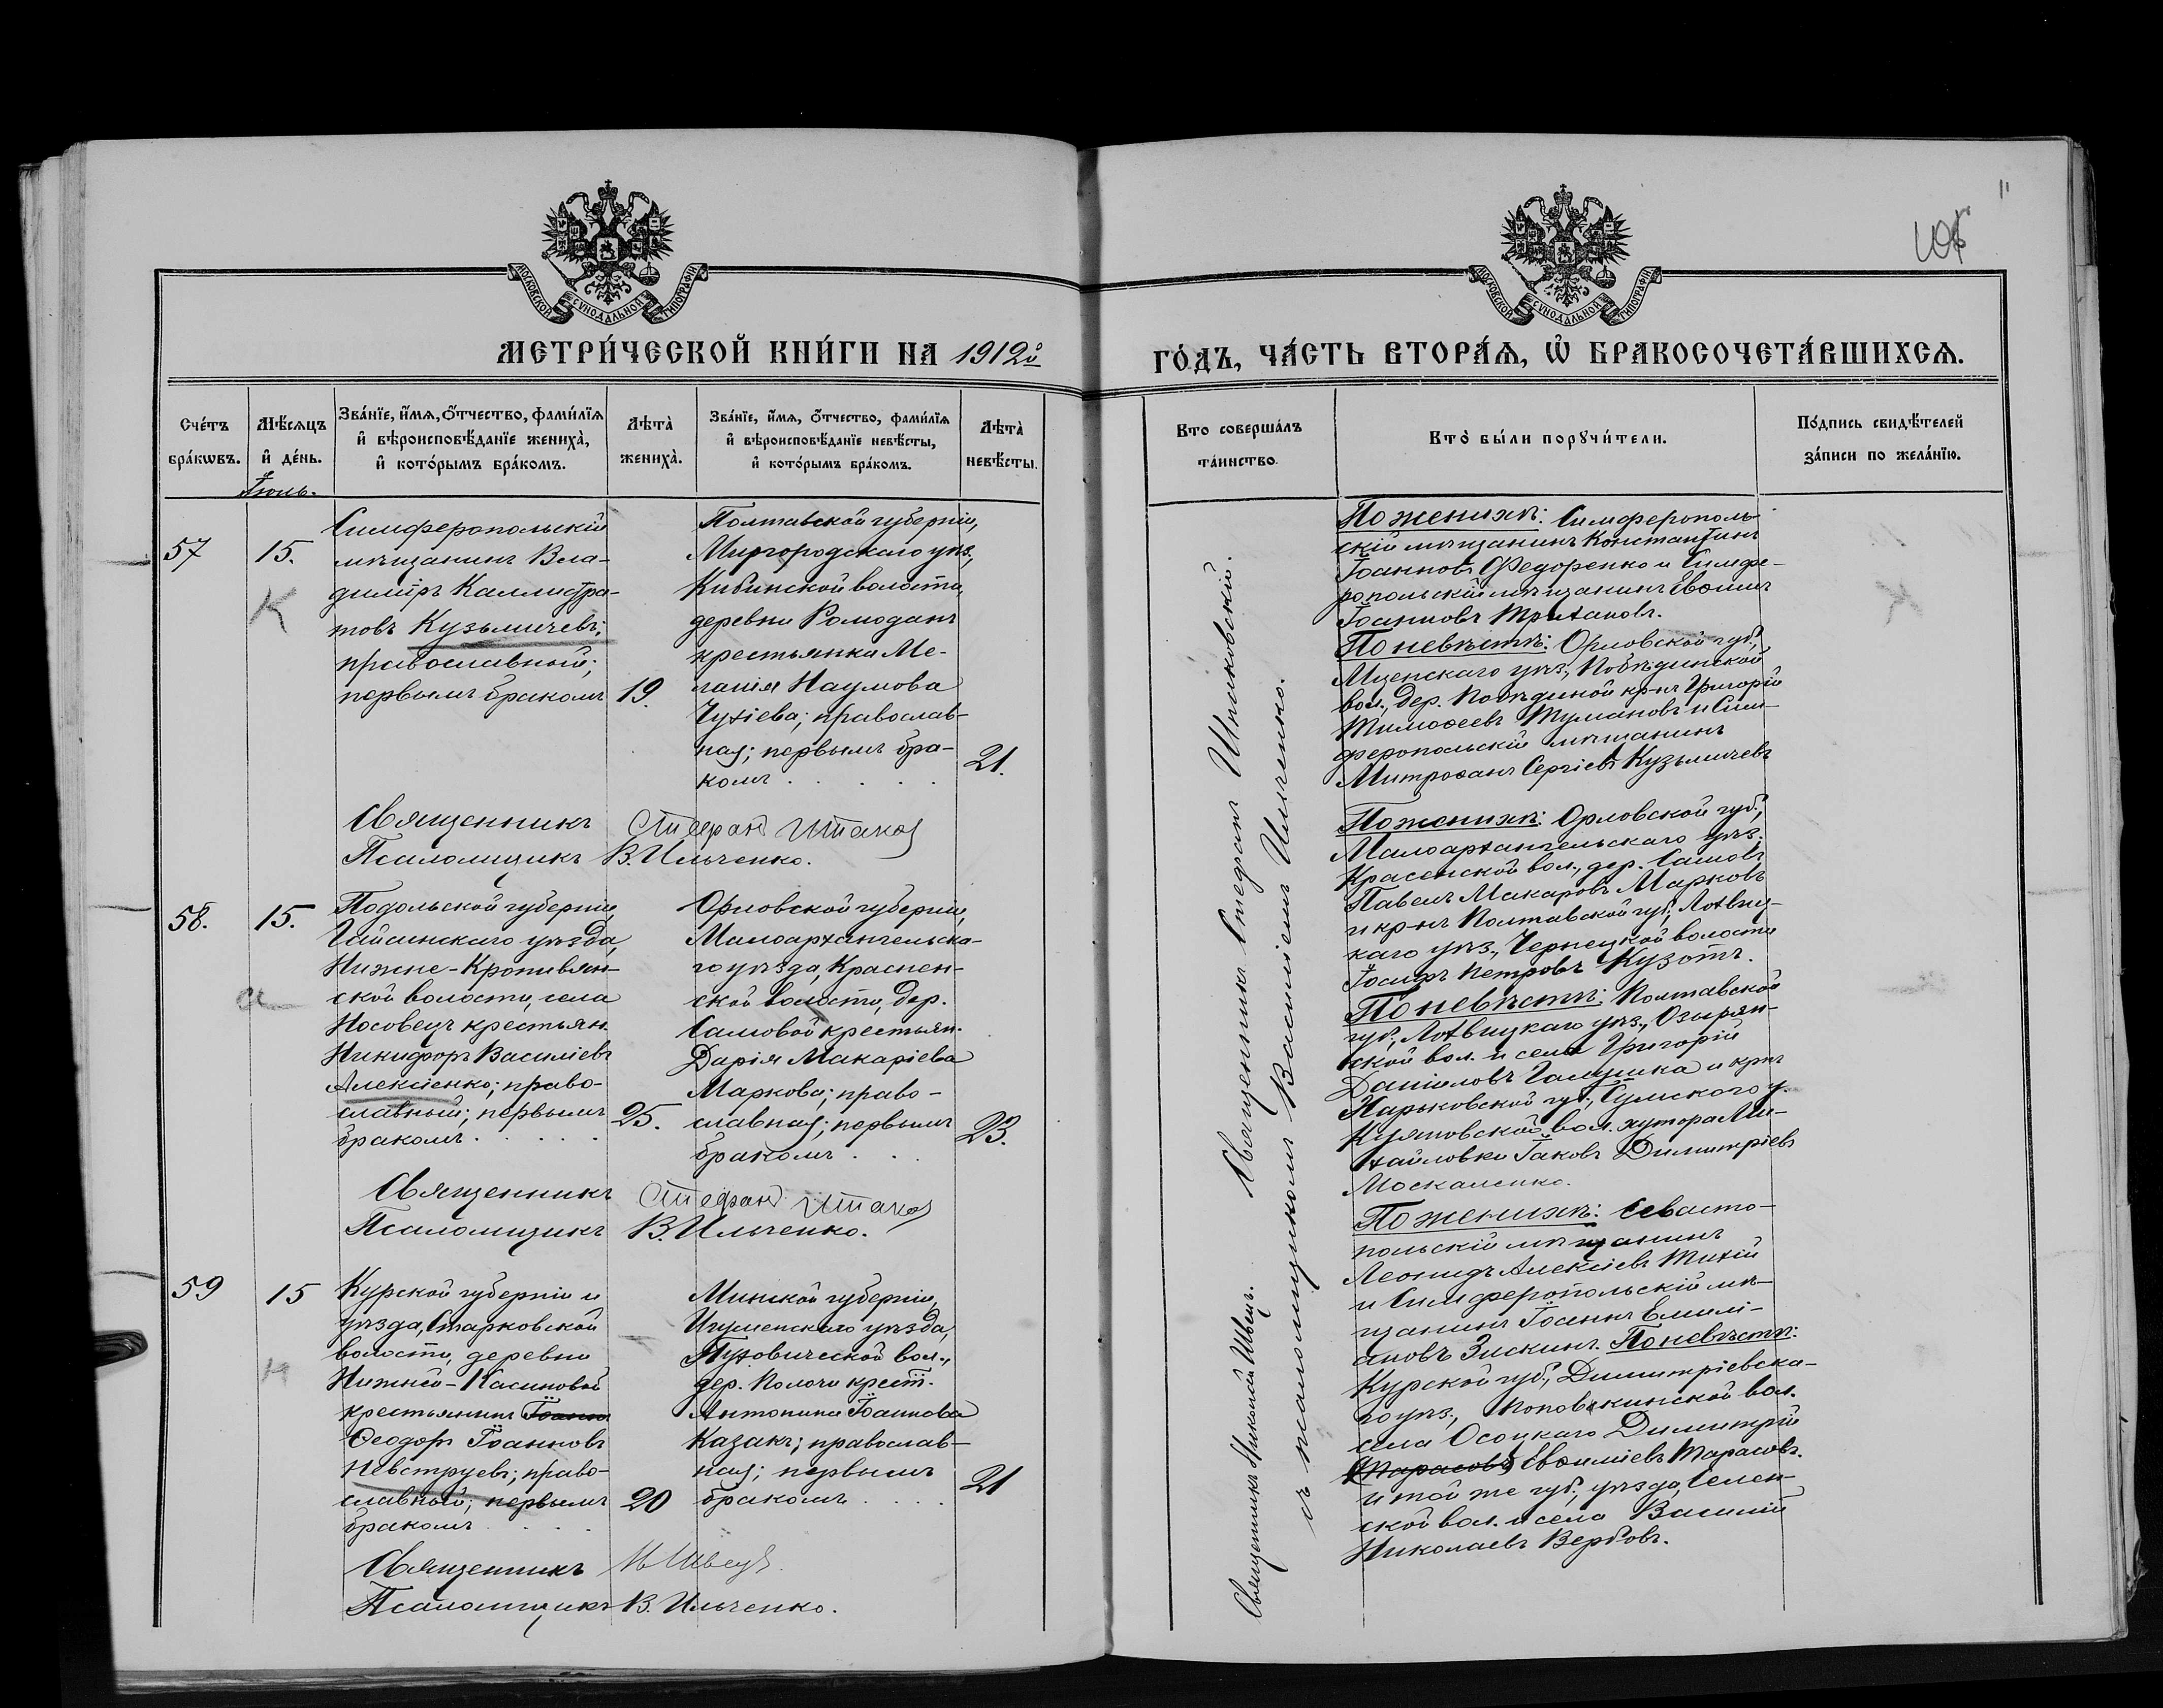 МОСКОВСКОЙ СѴНОДАЛЬНОЙ ТИПОГРАФІИ
МЕТРИ́ЧЕСКОЙ КНИ́ГИ НА 1912й
Сче́тъ бра́кѡвъ.
Мѣ́сяцъ и҆ де́нь.
Зва́нїе, и҆́мя, ѻ҆́тчество, фами́лїя
и҆ вѣроисповѣ́данїе жениха̀,
и҆ кото́рымъ бра́комъ.
Лѣта̀ жениха̀.
Зва́нїе, и҆́мя, ѻ҆́тчество, фами́лїя
и҆ вѣроисповѣ́данїе невѣ́сты,
и҆ кото́рымъ бра́комъ.
Лѣта̀ невѣ́сты.
Іюль.
57
15.
К
Симферопольскій
мѣщанинъ Вла-
димиръ Каллистра-
товъ Кузьмичевъ;
православный;
первымъ бракомъ
19.
Полтавской губерніи,
Миргородскаго уѣз.,
Кибинской волости,
деревни Ромоданъ
крестьянка Ме-
ланія Наумова
Чухіева; православ-
ная; первымъ бра-
комъ . . . .
21.
Священникъ Стефанъ
Псаломщикъ В. Ильченко.
58.
15.
Подольской губерніи,
Гайсинскаго уѣзда,
Нижне-Кропивян-
ской волости, села
Носовецъ крестьян.
Никифоръ Василіевъ
Алексіенко; право-
славный; первымъ
бракомъ . . . . .
25.
Орловской губерніи,
Малоархангельска-
го уѣзда, Краснен-
ской волости, дер.
Самовой крестьян.
Дарія Макаріева
Маркова; право-
славная; первымъ
бракомъ . . .
23.
Священникъ Стефанъ
Псаломщикъ В. Ильченко.
59
15
н
Курской губерніи и
уѣзда, Старковской
волости, деревни
Нижней-Касиновой
крестьянинъ Іоаннъ
Ѳеодоръ Іоанновъ
Невструевъ; право-
славный; первымъ
бракомъ . . . .
20
Минской губерніи,
Игуменскаго уѣзда,
Пуховической вол.,
дер. Полочи крест.
Антонина Іоаннова
Казакъ; православ-
ная; первымъ
бракомъ . . . .
21
Священникъ Н Швецъ.
Псаломщикъ В. Ильченко.
11
МОСКОВСКОЙ СѴНОДАЛЬНОЙ ТИПОГРАФІИ
ГО́ДЪ, ЧА́СТЬ ВТОРА́Я, Ѽ БРАКОСОЧЕТА́ВШИХСЯ.
Кто совершалъ та́инство.
Кто̀ бы́ли порꙋчи́тели.
По́дпись свидѣ́телей
за́писи по жела́нїю.
Священникъ Стефанъ
съ псаломщикомъ Василіемъ Ильченко.
Священникъ Николай Швецъ.
По женихѣ: Симферополь-
скій мѣщанинъ Константинъ
Іоанновъ Федоренко и Симфе-
ропольскій мѣщанинъ Евѳимъ
Іоанновъ Трихановъ.
По невѣстѣ: Орловской губ.,
Мценскаго уѣз., Побѣдинской
вол., дер. Побѣдиной кр-нъ Григорій
Тимоѳеевъ Тумановъ и Сим-
феропольскій мѣщанинъ
Митрофанъ Сергіевъ Кузьмичевъ
По женихѣ: Орловской губ.,
Малоархангельскаго уѣз.
Красенской вол., дер. Самовъ
Павелъ Макаровъ Марковъ
и кр-нъ Полтавской губ., Лохвиц-
каго уѣз., Чернецкой волости
Іосифъ Петровъ Кузотъ.
По невѣстѣ: Полтавской
губ., Лохвицкаго уѣз., Озырян-
ской вол. и села Григорій
Даніиловъ Галушка и кр-нъ
Харьковской губ., Сумскаго у.
Куяновской вол. хутора Ми-
хайловки Іаковъ Димитріевъ
Москаленко.
По женихѣ: Севасто-
польскій мѣщанинъ
Леонидъ Алексіевъ Тихій
и Симферопольскій мѣ-
щанинъ Іоаннъ Емили-
ановъ Зискинъ. По невѣстѣ:
Курской губ., Димитріевска-
го уѣз., Поповкинской вол.
села Осоцкаго Димитрій
Тарасовъ Евѳиміевъ Тарасовъ.
и той же губ., уѣзда, Селен-
ской вол. и села Василій
Николаевъ Вербовъ.